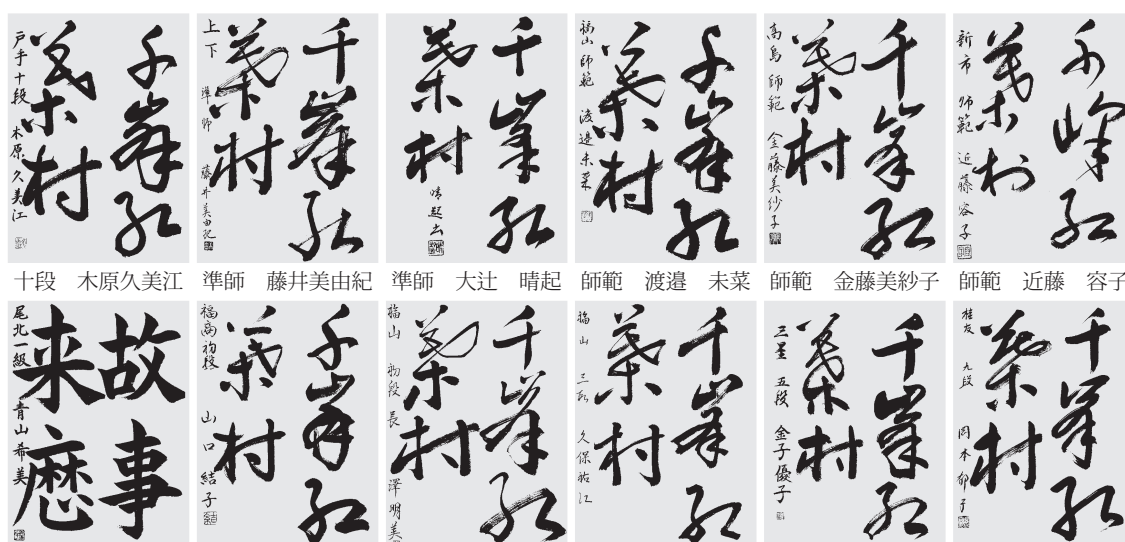 千峯紅
葉村
戸手十段 木原久美江
千峯紅
葉村
上下 準師 藤井美由紀
千峯紅
葉村
晴起書
千峯紅
葉村
福山師範 渡邉未菜
千峯紅
葉村
高島師範 金藤美紗子
千峰紅
葉村
新市 師範 近藤容子
十段 木原久美江
準師 藤井美由紀
準師 大辻 晴起
師範 渡邉 未菜
師範 金藤美紗子
師範 近藤 容子
故事
来歴
尾北一級 青山希美
千峯紅
葉村
福高初段 山口結子
千峯紅
葉村
福山 初段 長澤明美
千峯紅
葉村
福山 久保祐江
千峯紅
葉村
三星 五段 金子優子
千峯紅
葉村
桂友 九段 岡本郁子